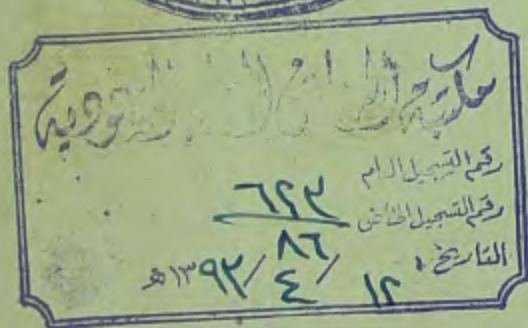 مكتبة الرياض السعودية
رقم التسجيل العام
رقم التسجيل الخاص ٦٢٣
٨٦
التاريخ : ١٢ / ٤ / ١٣٩٣هـ